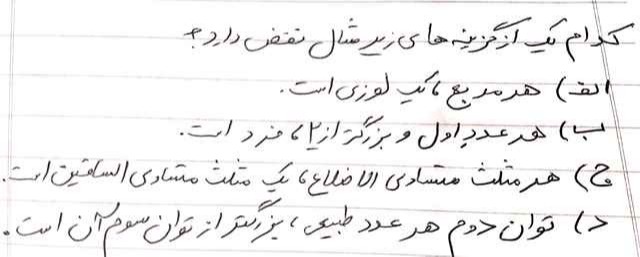 کدام یک از گزینه های زیر مثال نقض دارد؟
الف) هر مربع، یک لوزی است.
ب) هر عدد اول و بزرگتر از ۲، فرد است.
ج) هر مثلث متساوی الاضلاع، یک مثلث متساوی الساقین است.
د) توان دوم هر عدد طبیعی، بزرگتر از توان سوم آن است.